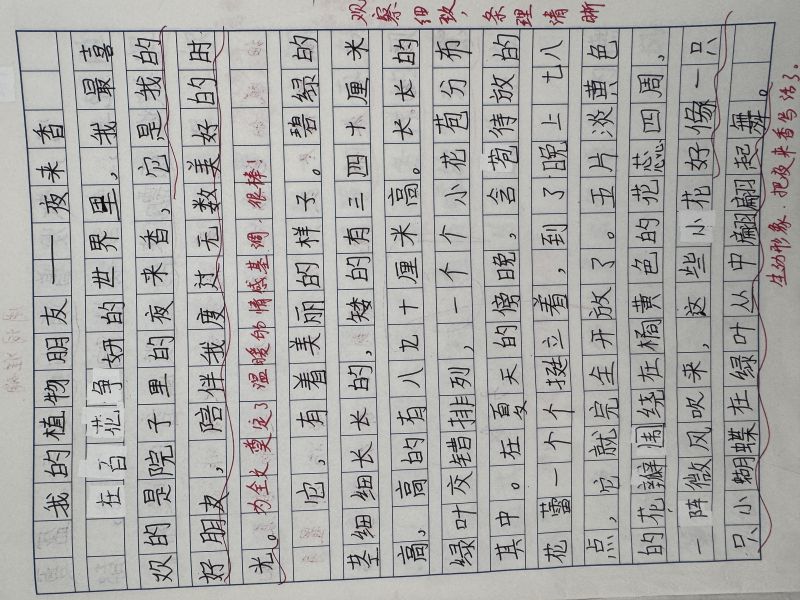 观察细致，条理清晰
我的植物朋友——夜来香
在百花争妍的世界里，我最喜
欢的是院子里的夜来香，它是我的
好朋友，陪伴我度过无数美好的时
光。
为全文奠定了温暖的情感基调，很棒！
它，有着美丽的样子。碧绿的
茎细细长长的，矮的有三四十厘米
高，高的有八九十厘米高。长长的
绿叶交错排列，一个个小花苞分布
其中。在夏天的傍晚，含苞待放的
花蕾一个个挺立着，到了晚上七八
点，它就完全开放了。五片淡黄色
的花瓣围绕在橘黄色的花蕊四周，
一阵微风吹来，这些小花好像一只
只小蝴蝶在绿叶丛中翩翩起舞。
生动形象，把夜来香写活了。